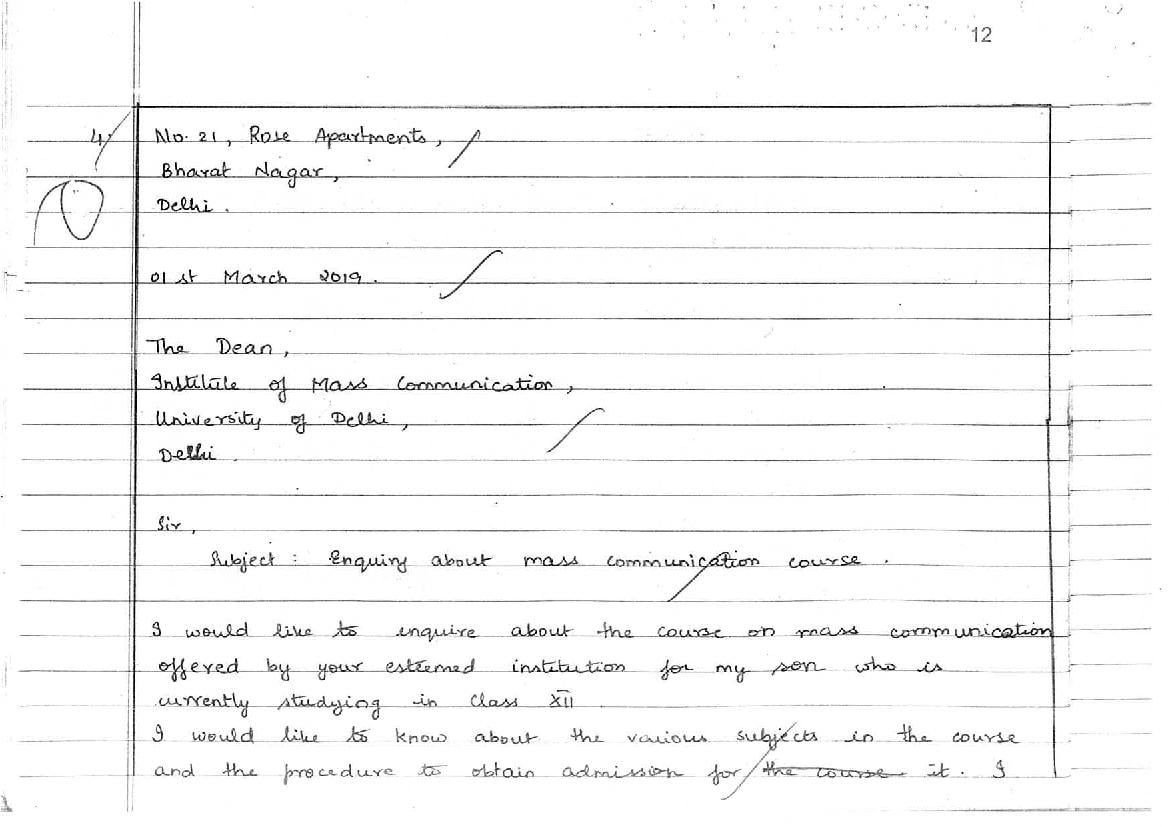 12
4.
No. 21, Rose Apartments,
Bharat Nagar,
Delhi.
01st March 2019.
The Dean,
Institute of Mass Communication,
University of Delhi,
Delhi.
Sir,
Subject : Enquiry about mass communication course.
I would like to enquire about the course on mass communication
offered by your esteemed institution for my son who is
currently studying in Class XII
I would like to know about the various subjects in the course
and the procedure to obtain admission for the course it. I